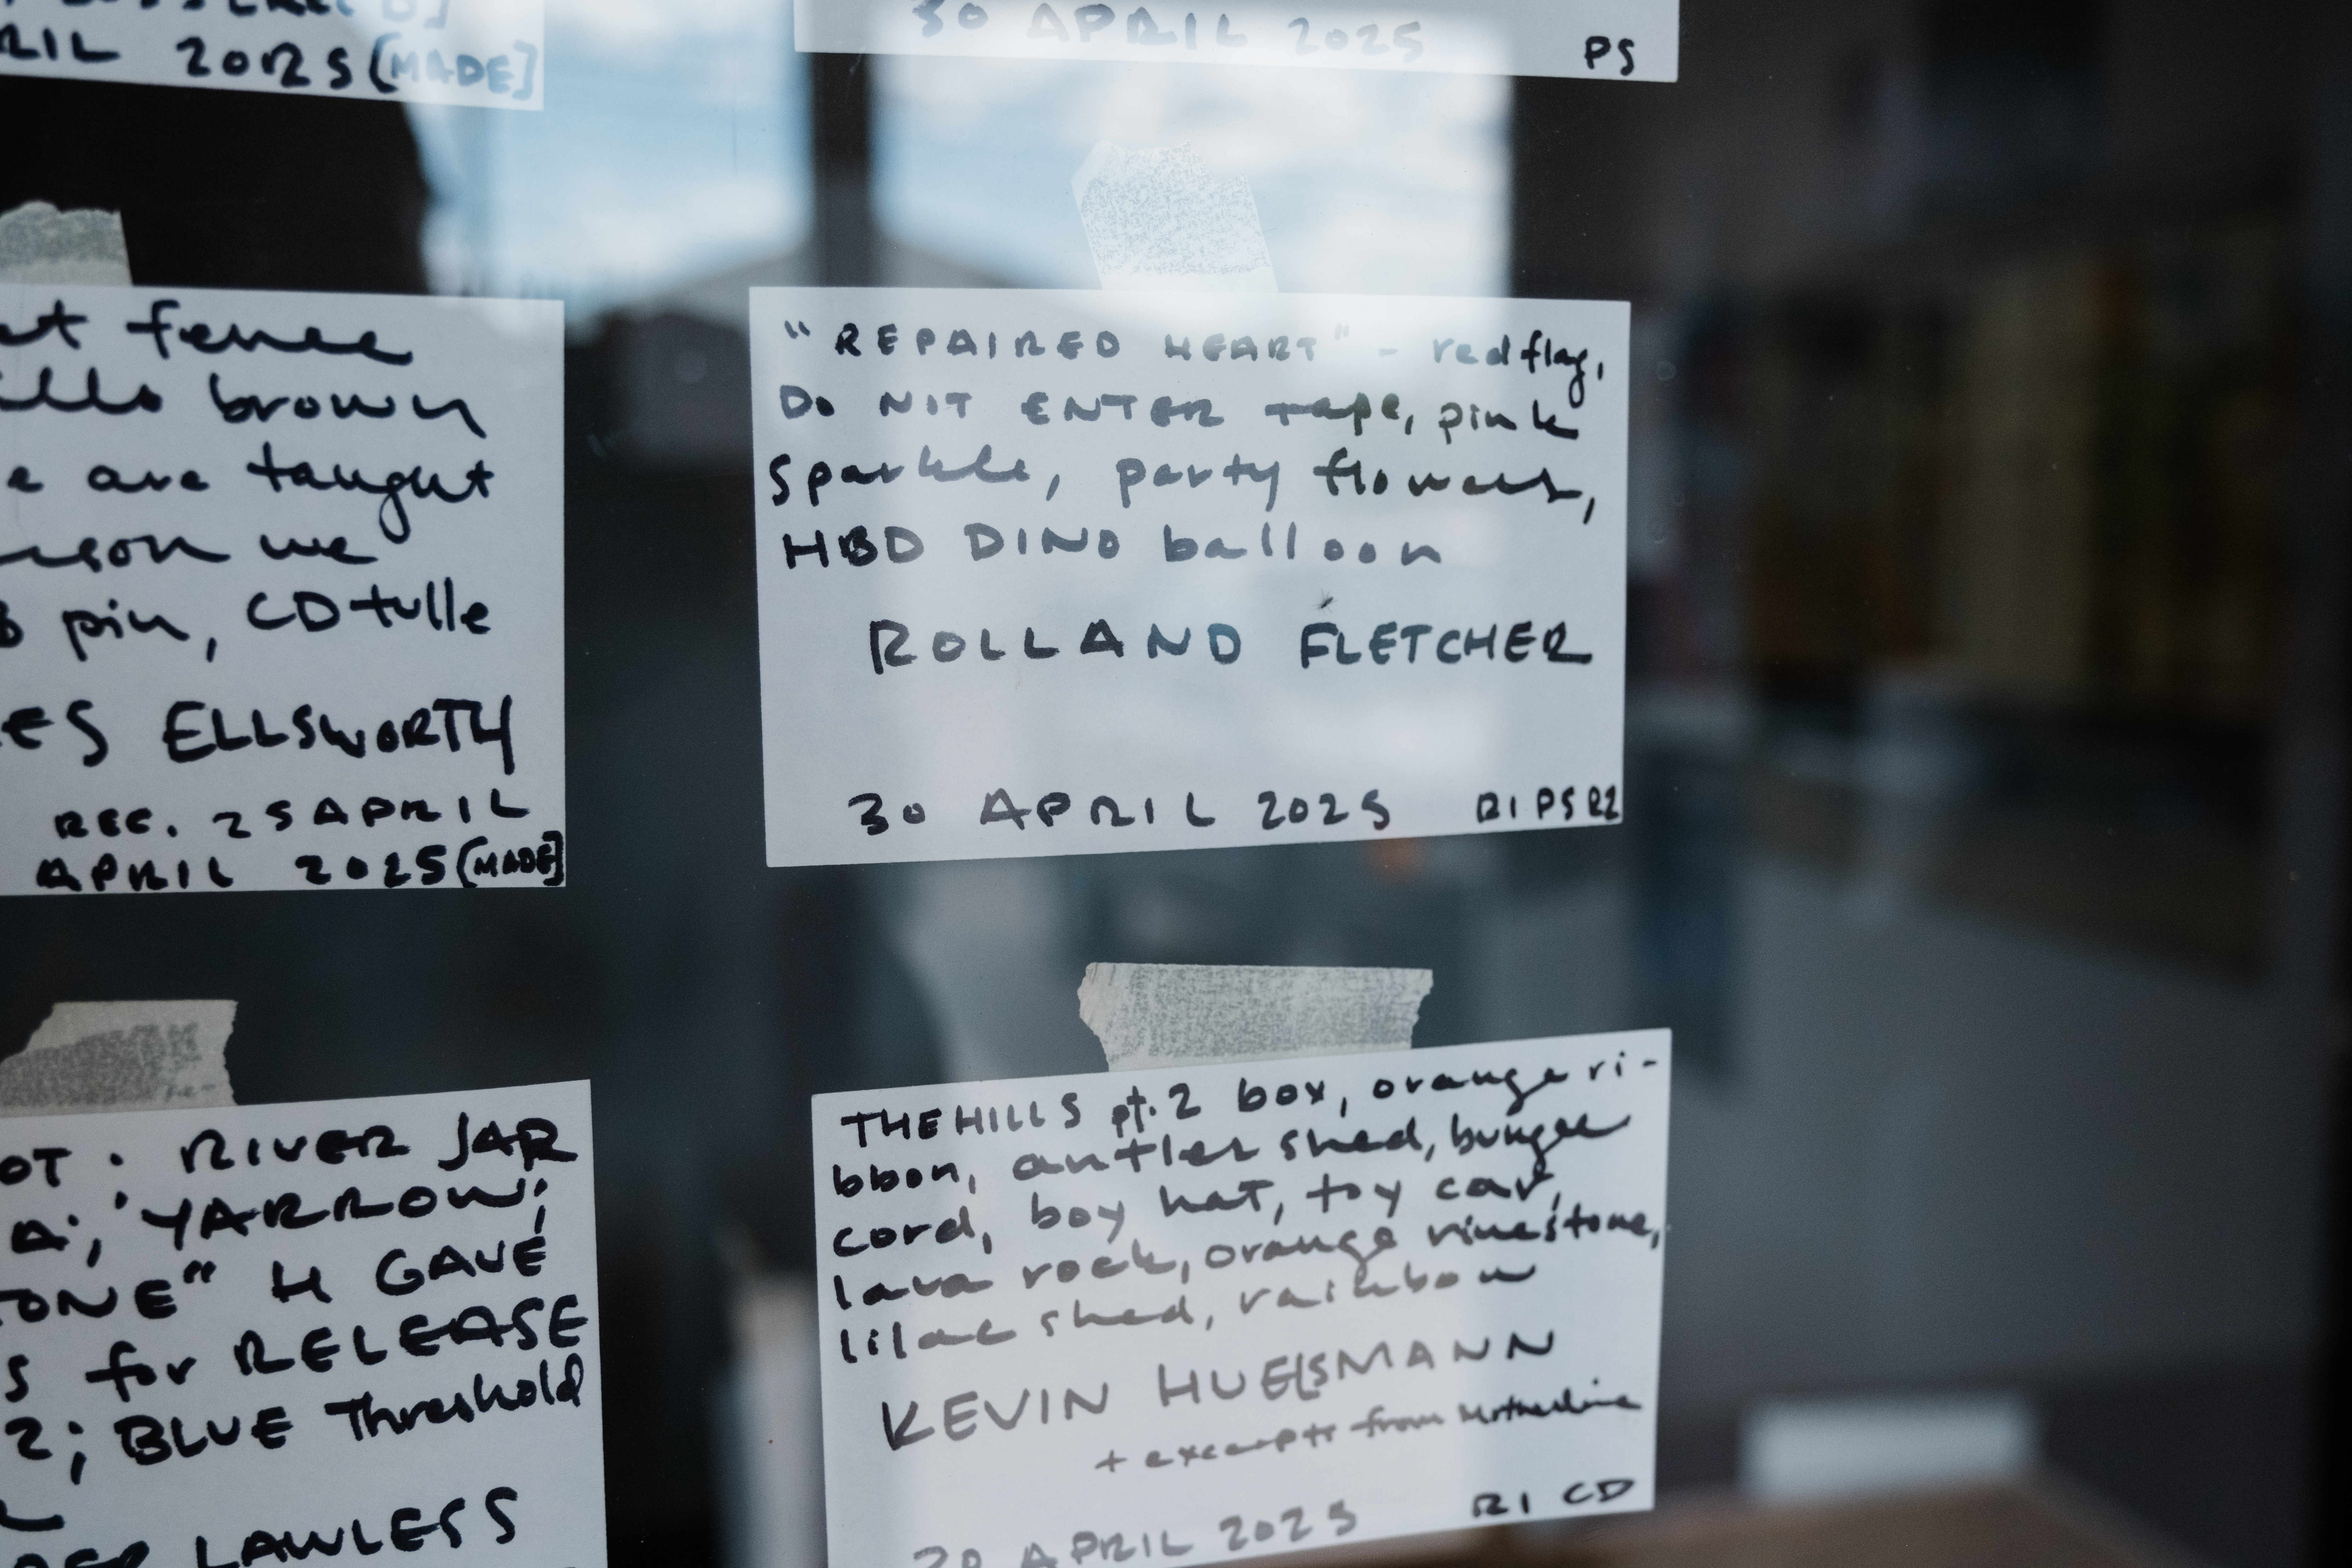 RIL 2025 [MADE]
30 APRIL 2025
PS
fence
brown
are taught
we
pin, CD tulle
ES ELLSWORTH
REC. 25 APRIL
APRIL 2025 [MADE]
"REPAIRED HEART" - red flag,
DO NOT ENTER tape, pink
Sparkle, party flowers,
HBD DINO balloon
ROLLAND FLETCHER
30 APRIL 2025 R1 PS R2
OT: RIVER JAR
A; YARROW;
TONE" H GAVE
S for RELEASE
2; BLUE Threshold
LAWLESS
THE HILLS pt. 2 box, orange ri-
bbon, antler shed, bungee
cord, boy hat, toy car,
lava rock, orange rinestone,
lilac shed, rainbow
KEVIN HUELSMANN
+ excerpts from Motherline
APRIL 2025 R1 CD